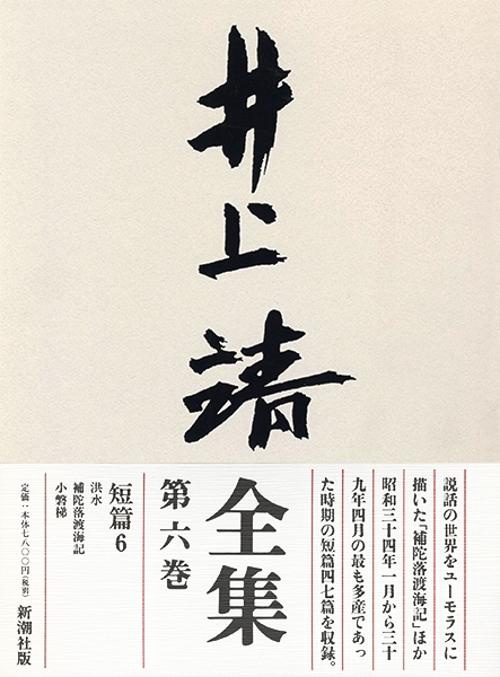 井上靖
全集
第六巻
説話の世界をユーモラスに
描いた「補陀落渡海記」ほか
昭和三十四年一月から三十
九年四月の最も多産であっ
た時期の短篇四七篇を収録。
短篇6
洪水
補陀落渡海記
小磐梯
定価：本体七八〇〇円（税別）
新潮社版